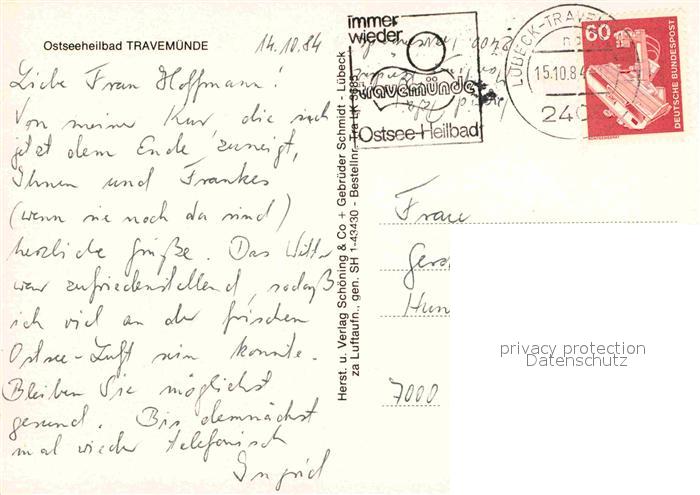 Ostseeheilbad TRAVEMÜNDE
14.10.84
Liebe Frau Hoffmann!
Von meiner Kur, die sich
jetzt dem Ende zuneigt,
Ihnen und Frankes
(wenn sie noch da sind)
herzliche Grüße. Das Wetter
war zufriedenstellend, sodaß
ich viel an der frischen
Ostsee-Luft sein konnte.
Bleiben Sie möglichst
gesund. Bis demnächst
mal wieder telefonisch
Ingrid
Herst. u. Verlag Schöning & Co + Gebrüder Schmidt - Lübeck
za Luftaufn., gen. SH 1-43430 - Bestellnr. Tra LK
immer
wieder
travemünde
Ostsee-Heilbad
2400
LÜBECK-TRAVEM
15.10.84
240
60
DEUTSCHE BUNDESPOST
Frau
Hun
7000
privacy protection
Datenschutz